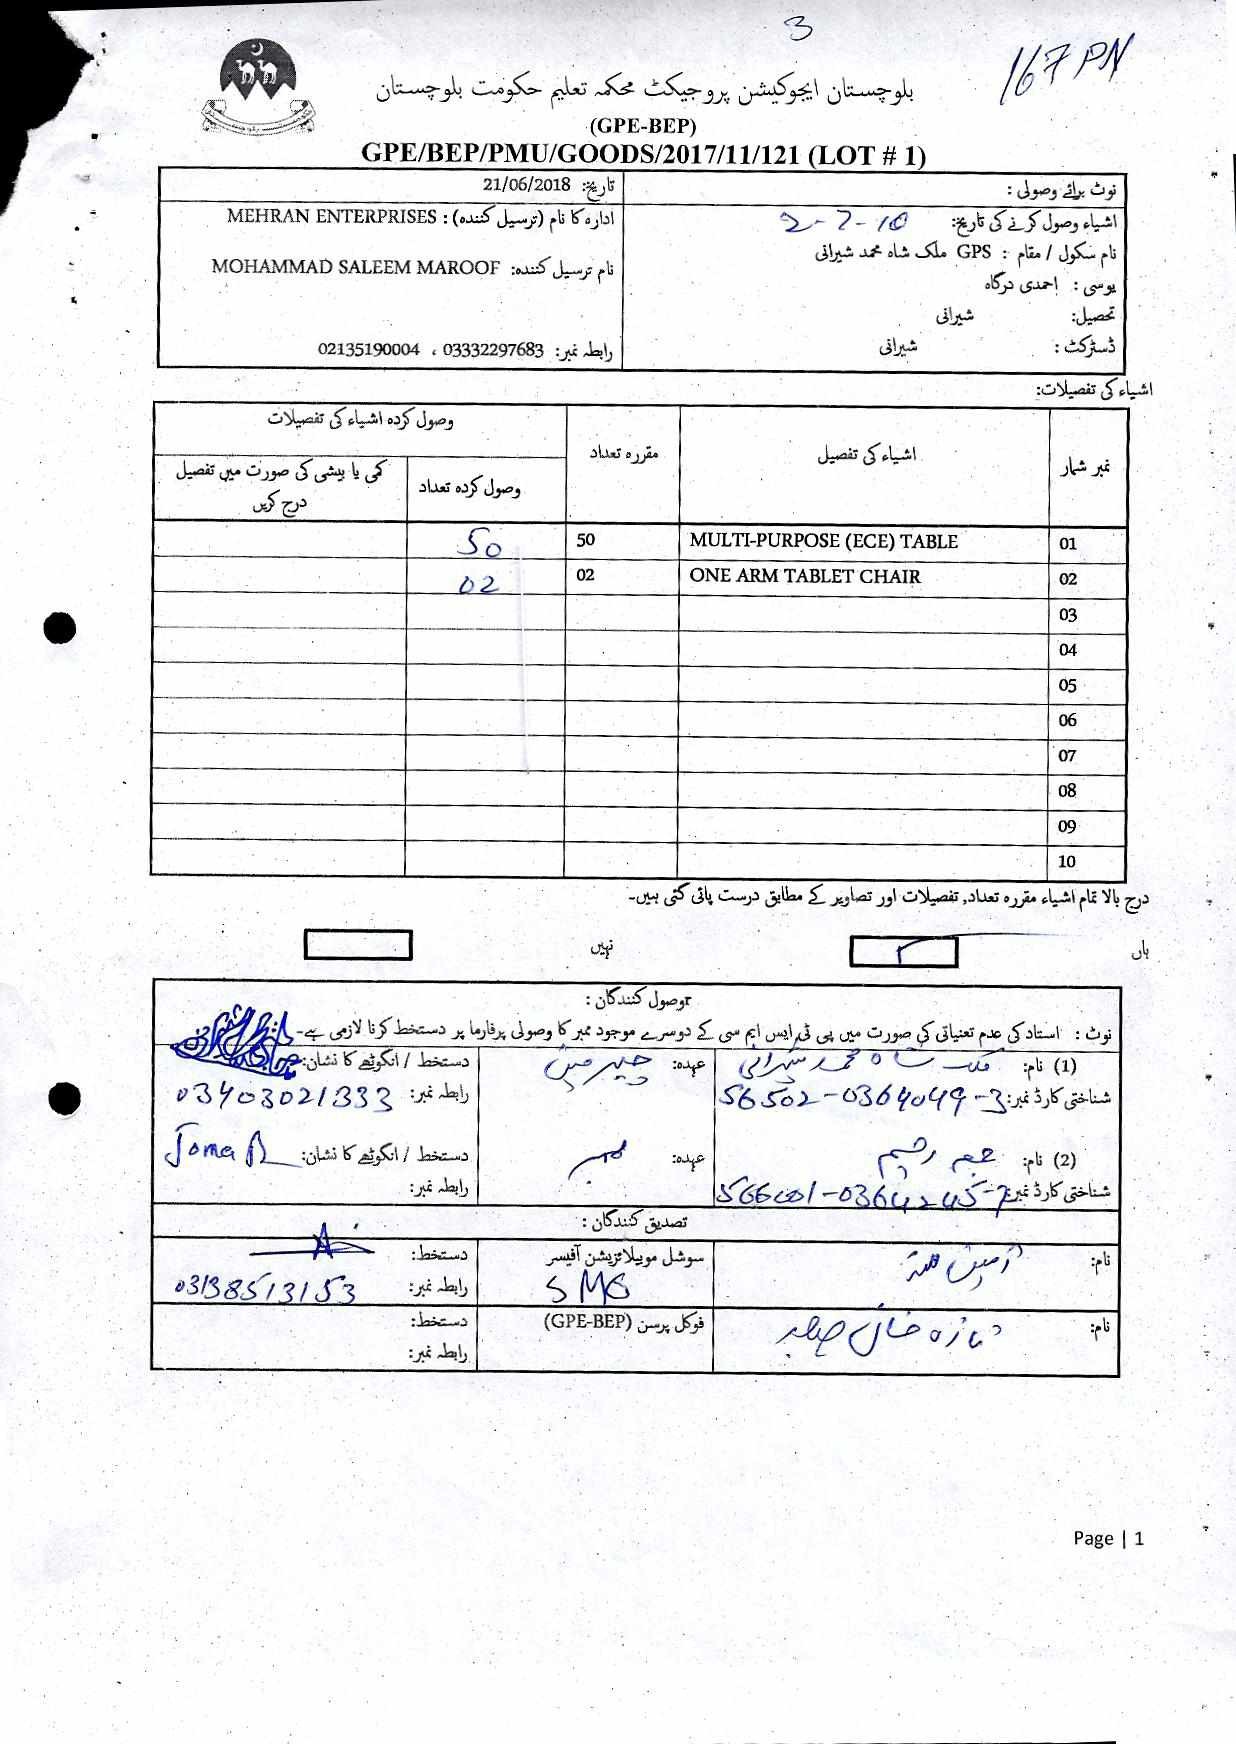 3
167 PN
بلوچستان ایجوکیشن پروجیکٹ محکمہ تعلیم حکومت بلوچستان
(GPE-BEP)
GPE/BEP/PMU/GOODS/2017/11/121 (LOT # 1)
نوٹ برائے وصولی :
تاریخ: 21/06/2018
اشیاء وصول کرنے کی تاریخ:
ادارہ کا نام (ترسیل کنندہ) : MEHRAN ENTERPRISES
نام سکول / مقام : GPS ملک شاہ محمد شیرانی
نام ترسیل کنندہ: MOHAMMAD SALEEM MAROOF
یوسی : احمدی درگاہ
تحصیل: شیرانی
ڈسٹرکٹ : شیرانی
رابطہ نمبر: 03332297683 ، 02135190004
اشیاء کی تفصیلات:
نمبر شمار اشیاء کی تفصیل مقررہ تعداد وصول کردہ اشیاء کی تفصیلات
وصول کردہ تعداد کمی یا بیشی کی صورت میں تفصیل درج کریں
01 MULTI-PURPOSE (ECE) TABLE 50 50
02 ONE ARM TABLET CHAIR 02 02
03
04
05
06
07
08
09
10
درج بالا تمام اشیاء مقررہ تعداد, تفصیلات اور تصاویر کے مطابق درست پائی گئی ہیں۔
ہاں نہیں
وصول کنندگان :
نوٹ : استاد کی عدم تعنیاتی کی صورت میں پی ٹی ایس ایم سی کے دوسرے موجود ممبر کا وصولی پرفارما پر دستخط کرنا لازمی ہے۔
(1) نام: ملک شاہ محمد شیرانی عہدہ: چیرمین دستخط / انگوٹھے کا نشان:
شناختی کارڈ نمبر: 56502-0364049-3 رابطہ نمبر: 03403021333
(2) نام: عہدہ: ممبر دستخط / انگوٹھے کا نشان:
شناختی کارڈ نمبر: رابطہ نمبر:
تصدیق کنندگان :
نام: سوشل موبیلائزیشن آفیسر دستخط:
SMO رابطہ نمبر: 03138513153
نام: فوکل پرسن (GPE-BEP) دستخط:
رابطہ نمبر:
Page | 1